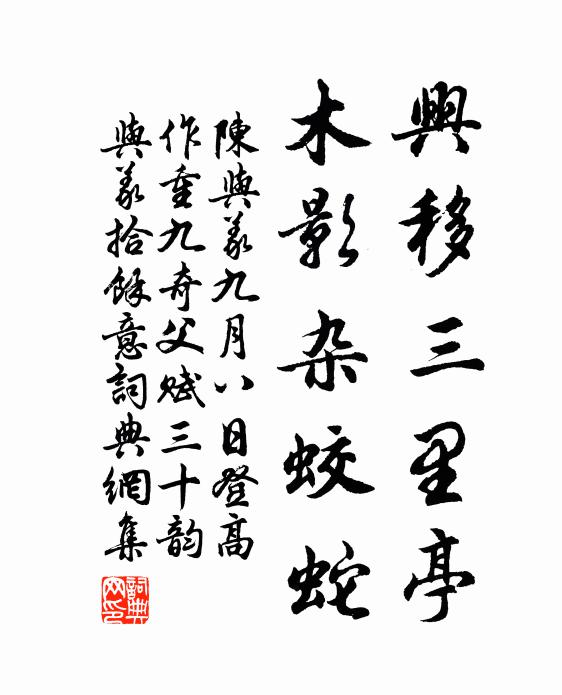 興移三里亭
木影杂蛟蛇
陳與義九月八日登高
作重九奇父賦三十韵
與義拾餘意詞典網集
詞典網印